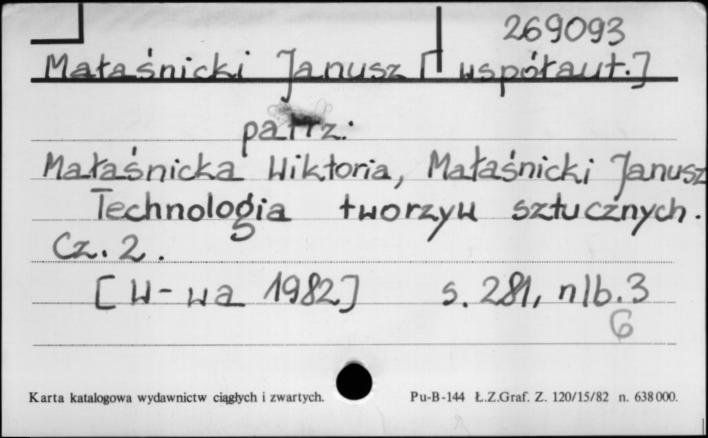 269093
Małaśnicki Janusz [współaut.]
patrz:
Małaśnicka Wiktoria, Małaśnicki Janusz
Technologia tworzyw sztucznych.
Cz. 2.
[W-wa 1982] s. 281, nlb. 3
6
Karta katalogowa wydawnictw ciągłych i zwartych. Pu-B-144 Ł.Z.Graf. Z. 120/15/82 n. 638 000.